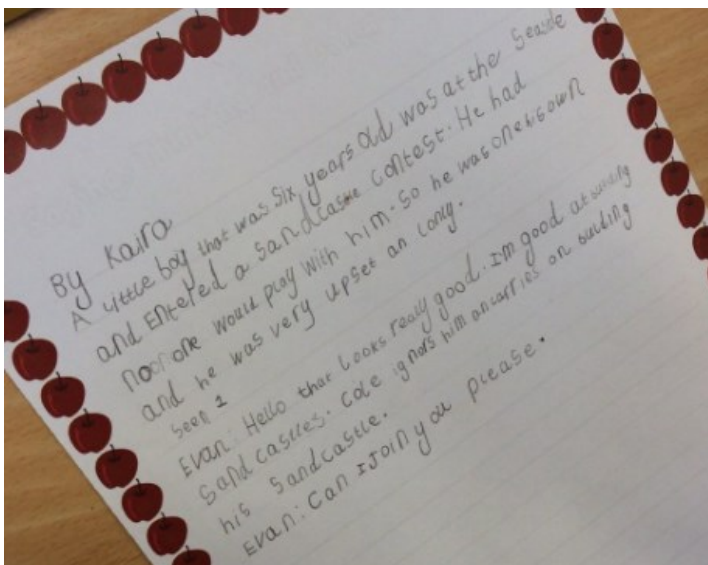 By Kaira
A little boy that was six years old was at the Seaside
and Entered a Sandcastle Contest. He had
noone would play with him. So he was one his own
and he was very upset an lonly.
Seen 1
Evan: Hello that looks really good. Im good at building
Sand castles. Cole ignors him an carries on building
his Sandcastle.
Evan: Can I Join you please.